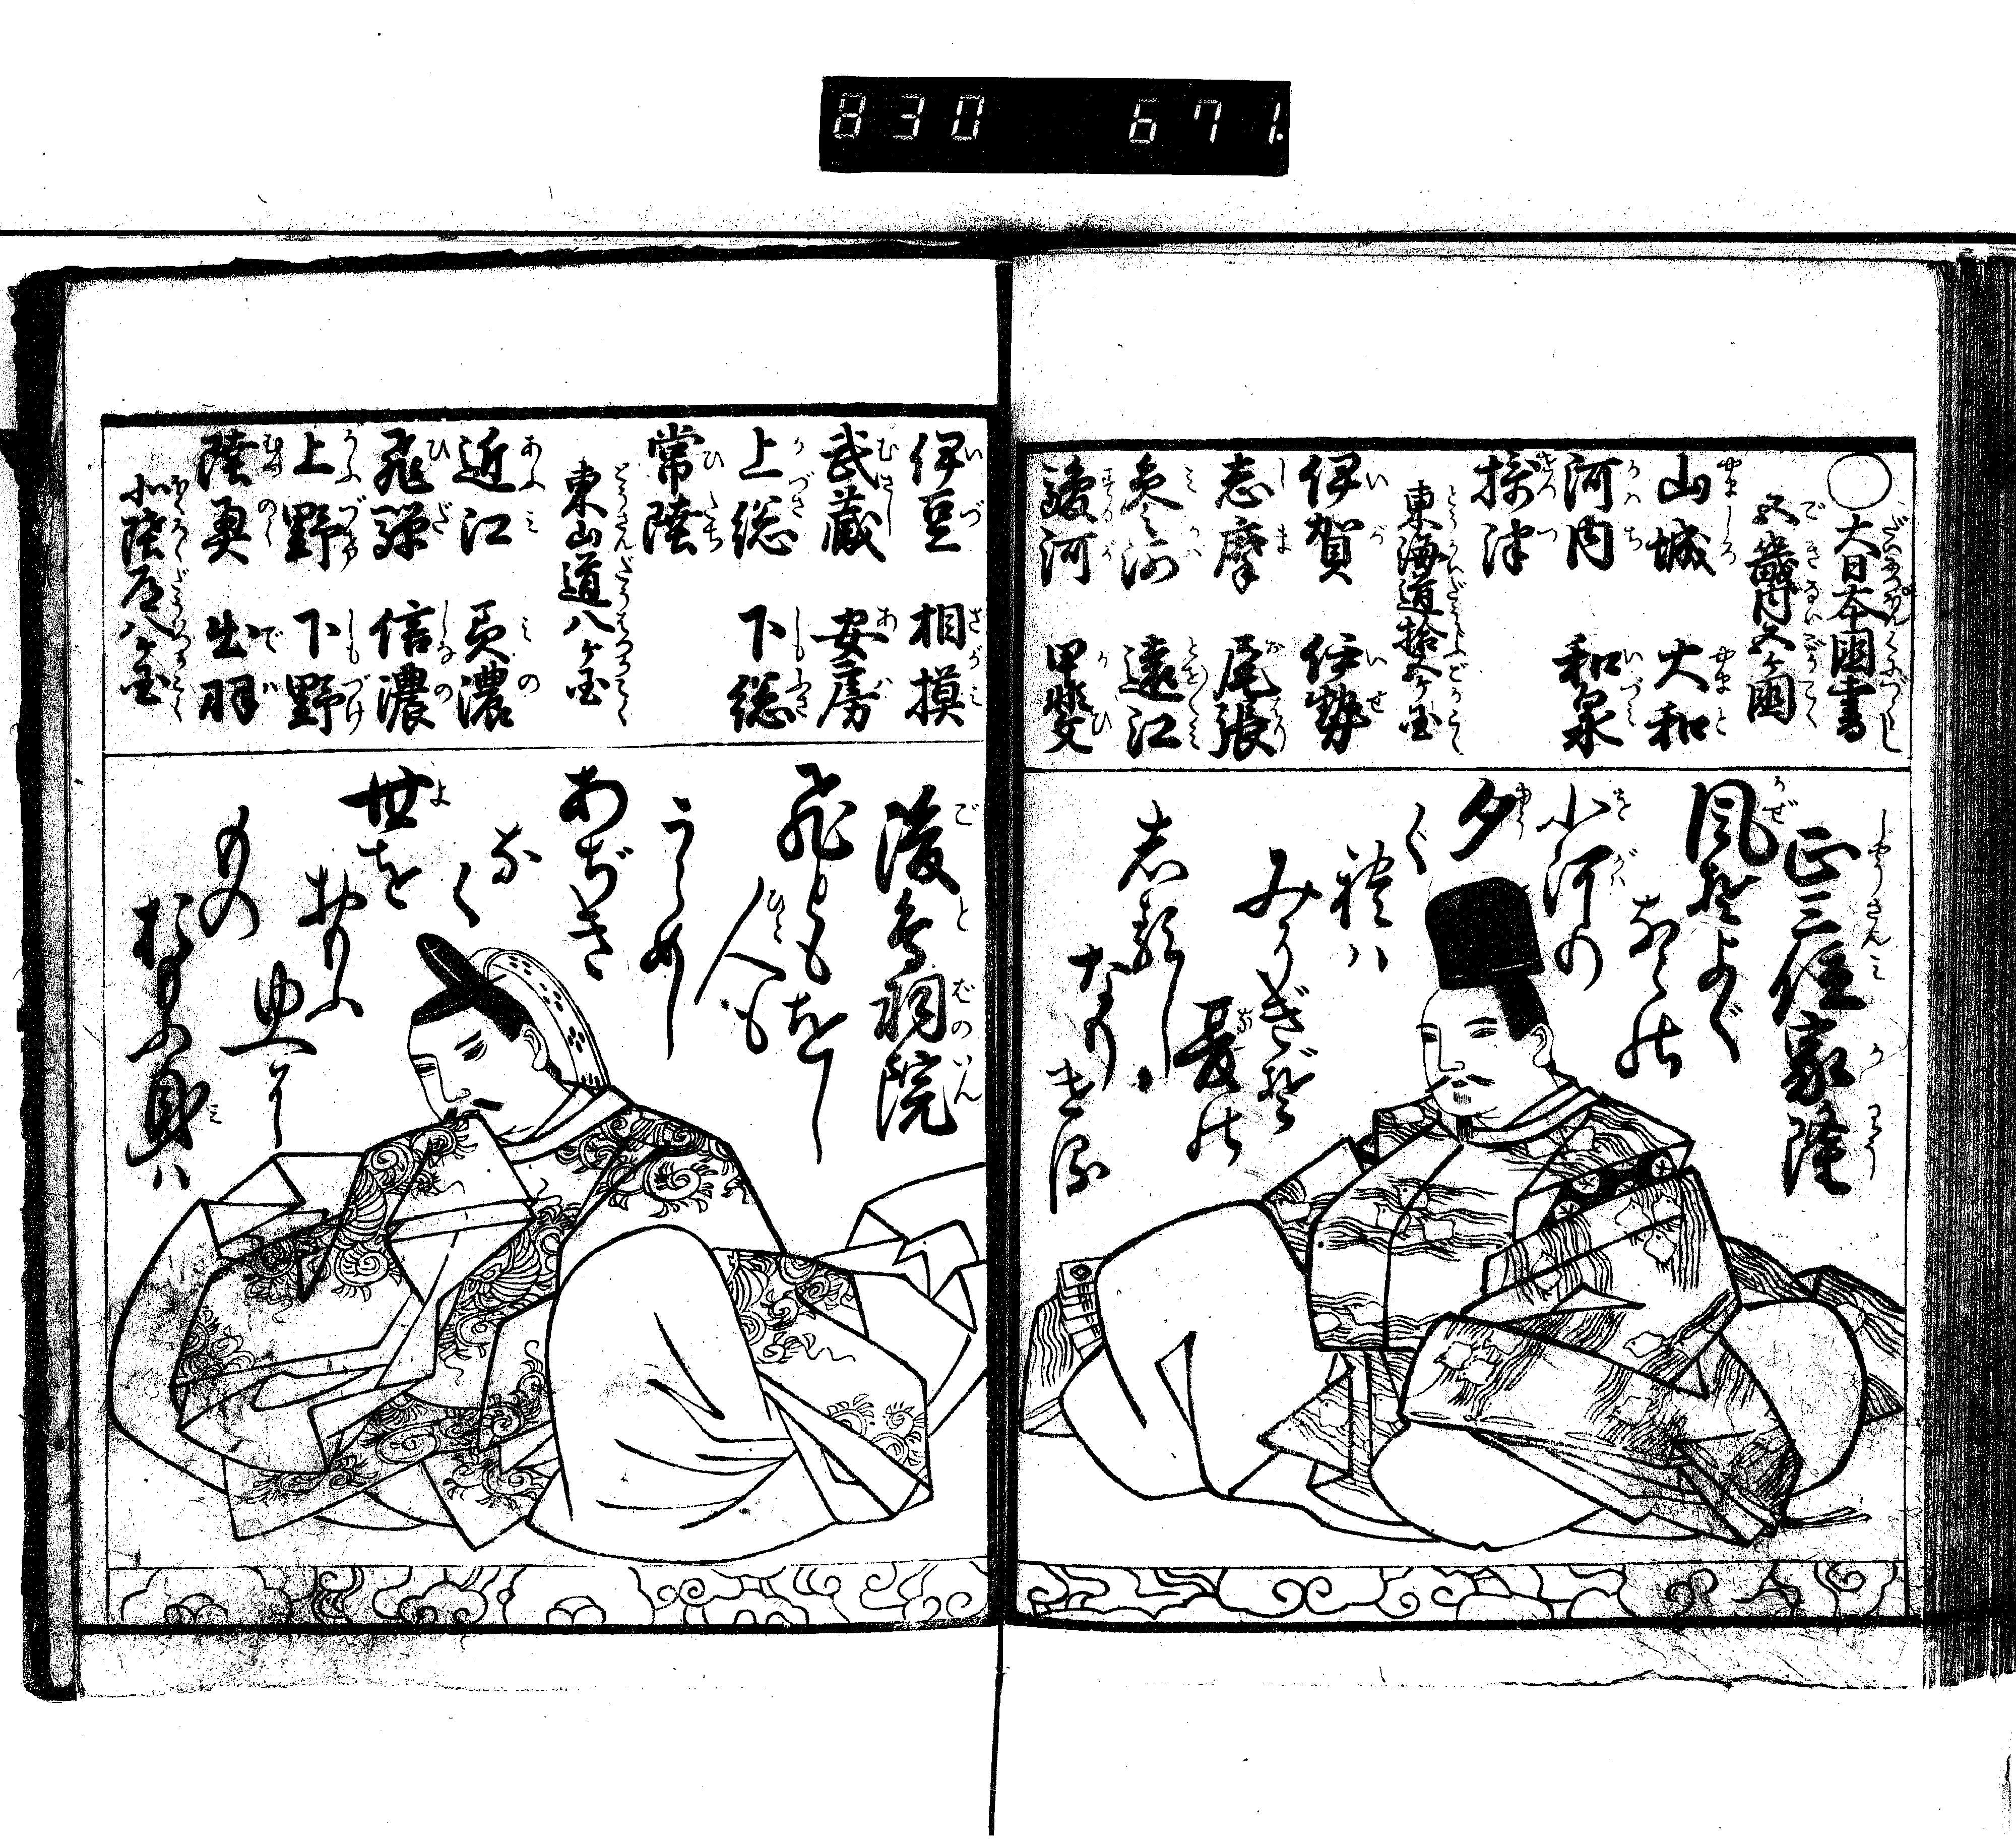 830 671.
大日本国尽
五畿内五ケ国
山城 大和
河内 和泉
摂津
東海道拾五ケ国
伊賀 伊勢
志摩 尾張
参河 遠江
駿河 甲斐
正三位家隆
風そよぐ
ならの
小河の
夕
ぐ
禮ハ
みそぎぞ
夏の
志るし
なり
ける
伊豆 相摸
武蔵 安房
上総 下総
常陸
東山道八ケ国
近江 美濃
飛騨 信濃
上野 下野
陸奥 出羽
北陸道八ケ国
後鳥羽院
人もをし
人も
うらめし
あぢき
な
く
世を
おもふ
ゆへに
もの
おもふ身ハ